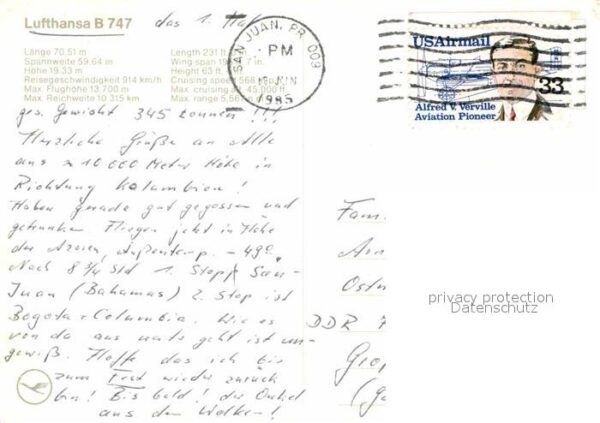 Lufthansa B 747
das 1. Mal
Länge 70.51 m
Spannweite 59.64 m
Höhe 19.33 m
Reisegeschwindigkeit 914 km/h
Max. Flughöhe 13.700 m
Max. Reichweite 10.315 km
Length 231 ft
Wing span 7 in
Height 63 f
Cruising speed 568
Max. cruising alt. 45.000 ft.
Max. range 5.56
SAN JUAN, PR. 009
PM
JUN
1985
USAirmail
33
Alfred V. Verville
Aviation Pioneer
ges. Gewicht 345 Tonnen !!!
Herzliche Grüße an Alle
aus ≈ 10 000 Meter Höhe in
Richtung Kolumbien!
Haben gerade gut gegessen und
getrunken. Fliegen jetzt in Höhe
der Azoren, Außentemp. – 49°.
Nach 8 3/4 Std 1. Stopp San-
Juan (Bahamas) 2. Stop ist
Bogota - Columbia. Wie es
von da aus weiter geht ist un-
gewiß. Hoffe das ich bis
zum Fest wieder zurück
bin! Bis bald! der Onkel
aus den Wolken!
Fam.
DDR
privacy protection
Datenschutz